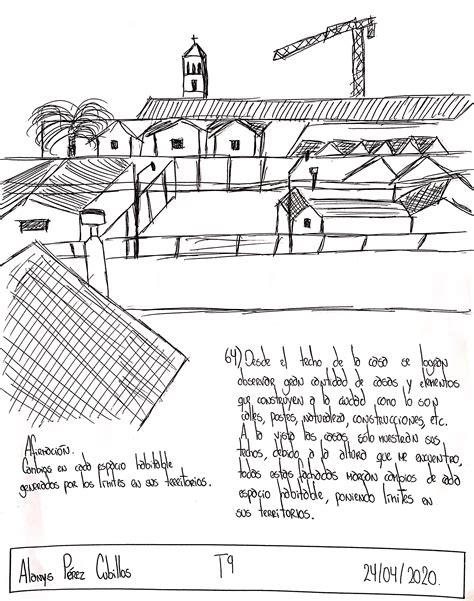 64) Desde el techo de la casa se logran
observar gran cantidad de casas y elementos
que construyen a la ciudad como lo son
calles, postes, naturaleza, construcciones, etc.
A la vista las casas solo muestran sus
techos, debido a la altura que me encuentro,
todas estas fachadas marcan cambios de cada
espacio habitable, poniendo límites en
sus territorios.
Afirmación.
Cambios en cada espacio habitable
generados por los límites en sus territorios.
Alannys Pérez Cubillos T9 24/04/2020.